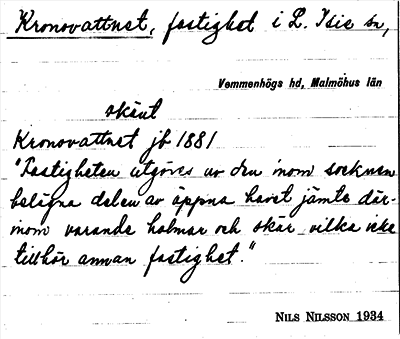 Kronovattnet, fastighet i L. Isie sn,
Vemmenhögs hd, Malmöhus län
skånt
Kronovattnet jb 1881
"Fastigheten utgöres av den inom socknen
belägna delen av öppna havet jämte där-
inom varande holmar och skär vilka icke
tillhör annan fastighet."
NILS NILSSON 1934